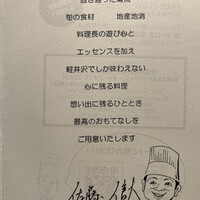 旬の食材　地産地消
料理長の遊び心と
エッセンスを加え
軽井沢でしか味わえない
心に残る料理
想い出に残るひととき
最高のおもてなしを
ご用意いたします
佐藤